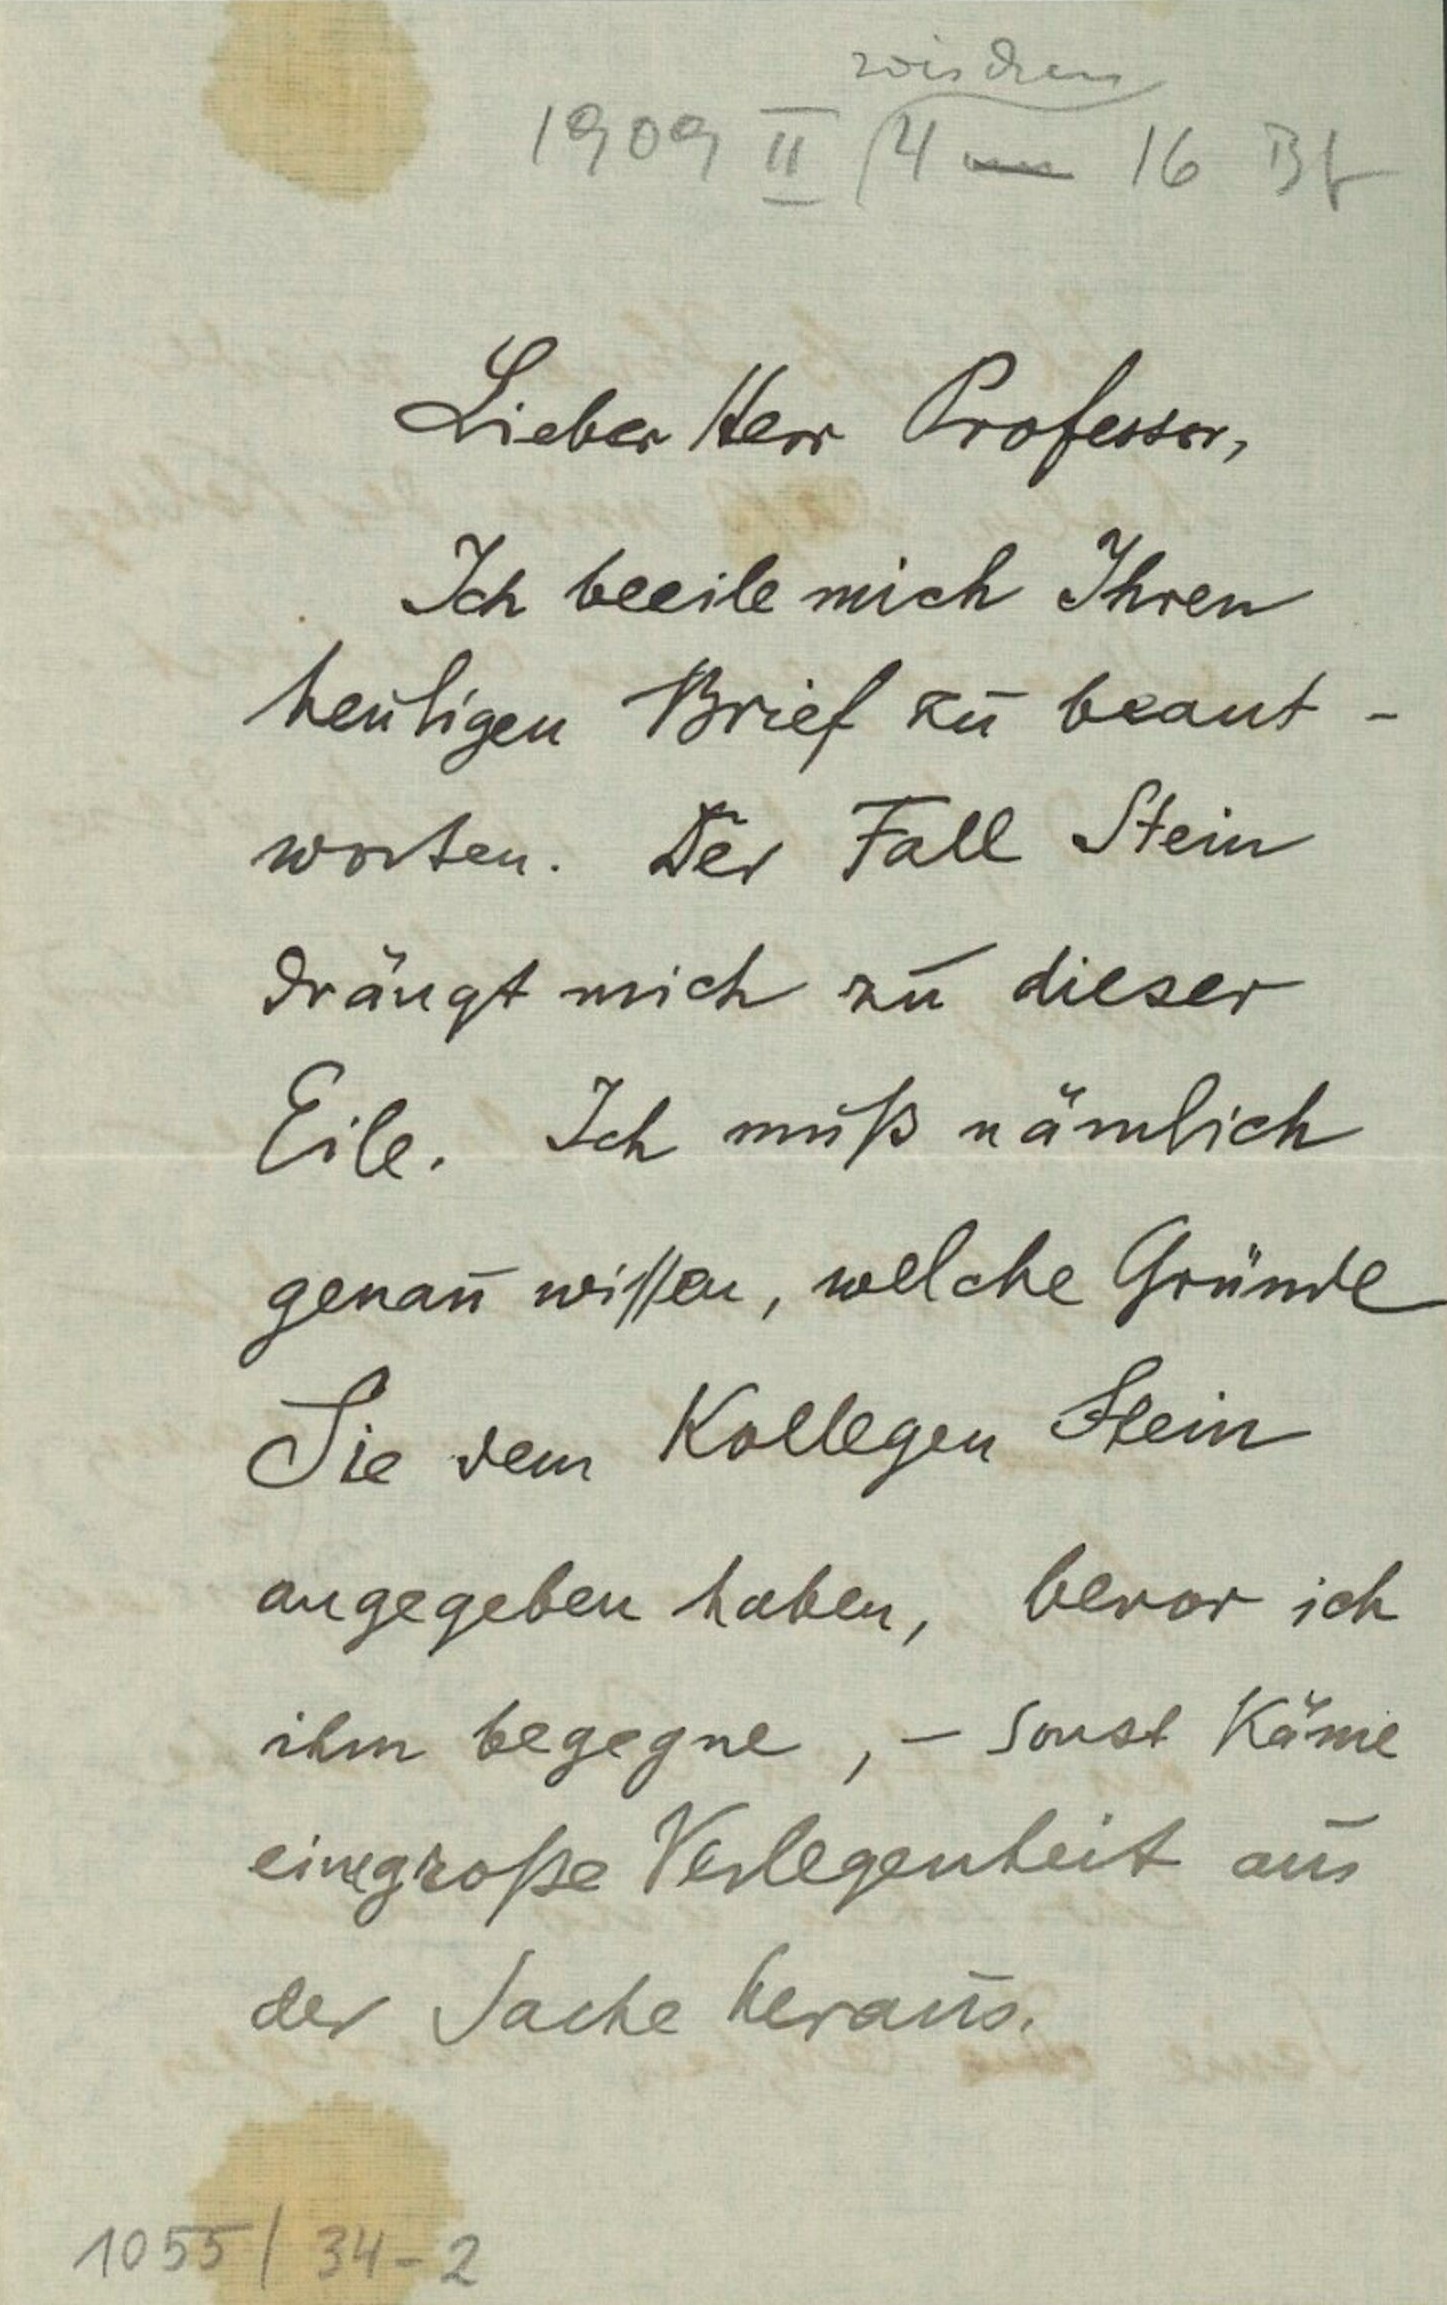 zwischen
1909 II 4 16 Bf
Lieber Herr Professor,
Ich beeile mich Ihren
heutigen Brief zu beant-
worten. Der Fall Stein
drängt mich zu dieser
Eile. Ich muß nämlich
genau wissen, welche Gründe
Sie dem Kollegen Stein
angegeben haben, bevor ich
ihm begegne, – sonst käme
eine große Verlegenheit aus
der Sache heraus.
1055/34-2